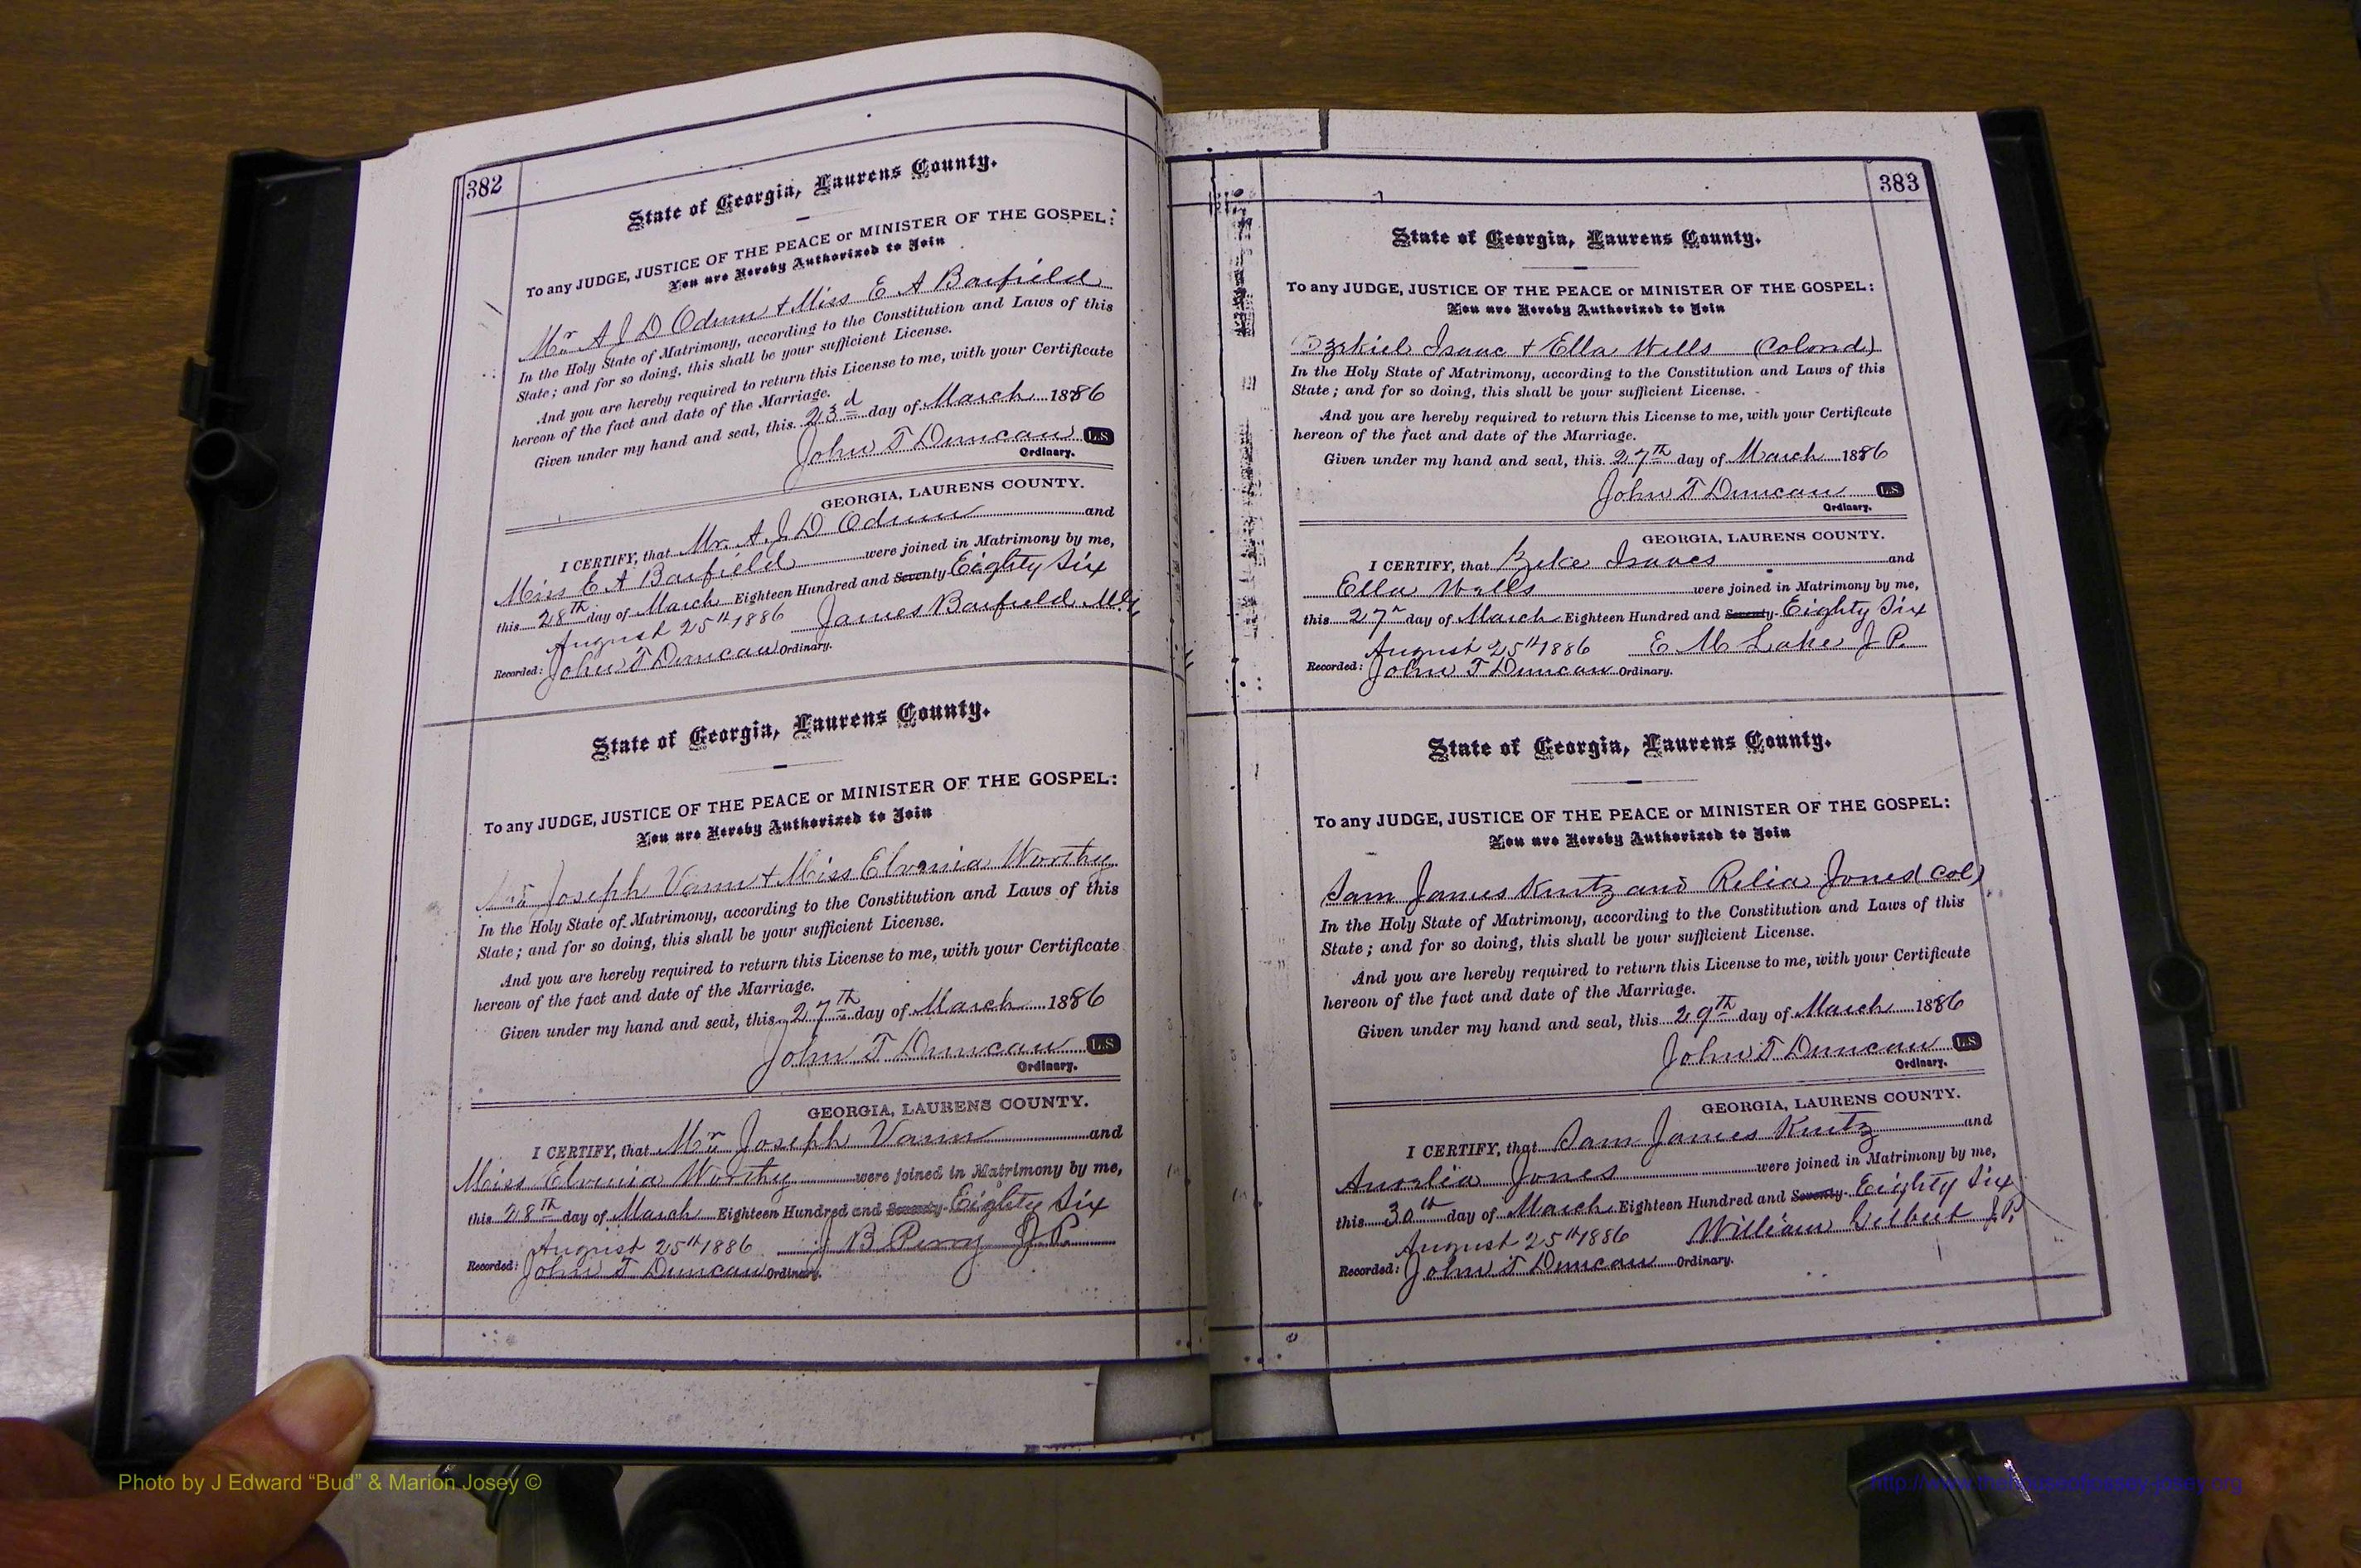 382
State of Georgia, Laurens County.
To any JUDGE, JUSTICE OF THE PEACE or MINISTER OF THE GOSPEL:
You are Hereby Authorized to Join
Mr. A J D Odum + Miss E A Barfield
In the Holy State of Matrimony, according to the Constitution and Laws of this
State; and for so doing, this shall be your sufficient License.
And you are hereby required to return this License to me, with your Certificate
hereon of the fact and date of the Marriage.
Given under my hand and seal, this 23d day of March 1886
John T Duncan L.S
Ordinary.
GEORGIA, LAURENS COUNTY.
I CERTIFY, that Mr. A. J. D Odum and
Miss E A Barfield were joined in Matrimony by me,
this 28TH day of March Eighteen Hundred and Seventy- Eighty Six
August 25th 1886 James Barfield
Recorded: John T Duncan Ordinary.
State of Georgia, Laurens County.
To any JUDGE, JUSTICE OF THE PEACE or MINISTER OF THE GOSPEL:
You are Hereby Authorized to Join
Mr Joseph Vann + Miss Elvania Worthy
In the Holy State of Matrimony, according to the Constitution and Laws of this
State; and for so doing, this shall be your sufficient License.
And you are hereby required to return this License to me, with your Certificate
hereon of the fact and date of the Marriage.
Given under my hand and seal, this 27TH day of March 1886
John T Duncan L.S
Ordinary.
GEORGIA, LAURENS COUNTY.
I CERTIFY, that Mr Joseph Vann and
Miss Elvania Worthy were joined in Matrimony by me,
this 28TH day of March Eighteen Hundred and Seventy- Eighty Six
August 25th 1886 J B Perry J P.
Recorded: John T Duncan Ordinary.
383
State of Georgia, Laurens County.
To any JUDGE, JUSTICE OF THE PEACE or MINISTER OF THE GOSPEL:
You are Hereby Authorized to Join
Ezekiel Isaac + Ella Wells (Colored)
In the Holy State of Matrimony, according to the Constitution and Laws of this
State; and for so doing, this shall be your sufficient License.
And you are hereby required to return this License to me, with your Certificate
hereon of the fact and date of the Marriage.
Given under my hand and seal, this 27TH day of March 1886
John T Duncan L.S
Ordinary.
GEORGIA, LAURENS COUNTY.
I CERTIFY, that Zeke Isaacs and
Ella Wells were joined in Matrimony by me,
this 27 day of March Eighteen Hundred and Seventy- Eighty Six
August 25th 1886 E M Lake J P.
Recorded: John T Duncan Ordinary.
State of Georgia, Laurens County.
To any JUDGE, JUSTICE OF THE PEACE or MINISTER OF THE GOSPEL:
You are Hereby Authorized to Join
Sam James Kintz and Relia Jones (Col)
In the Holy State of Matrimony, according to the Constitution and Laws of this
State; and for so doing, this shall be your sufficient License.
And you are hereby required to return this License to me, with your Certificate
hereon of the fact and date of the Marriage.
Given under my hand and seal, this 29TH day of March 1886
John T Duncan L.S
Ordinary.
GEORGIA, LAURENS COUNTY.
I CERTIFY, that Sam James Kintz and
Aurelia Jones were joined in Matrimony by me,
this 30th day of March Eighteen Hundred and Seventy- Eighty Six
August 25th 1886 William Gilbert J.P.
Recorded: John T Duncan Ordinary.
Photo by J Edward “Bud” & Marion Josey ©